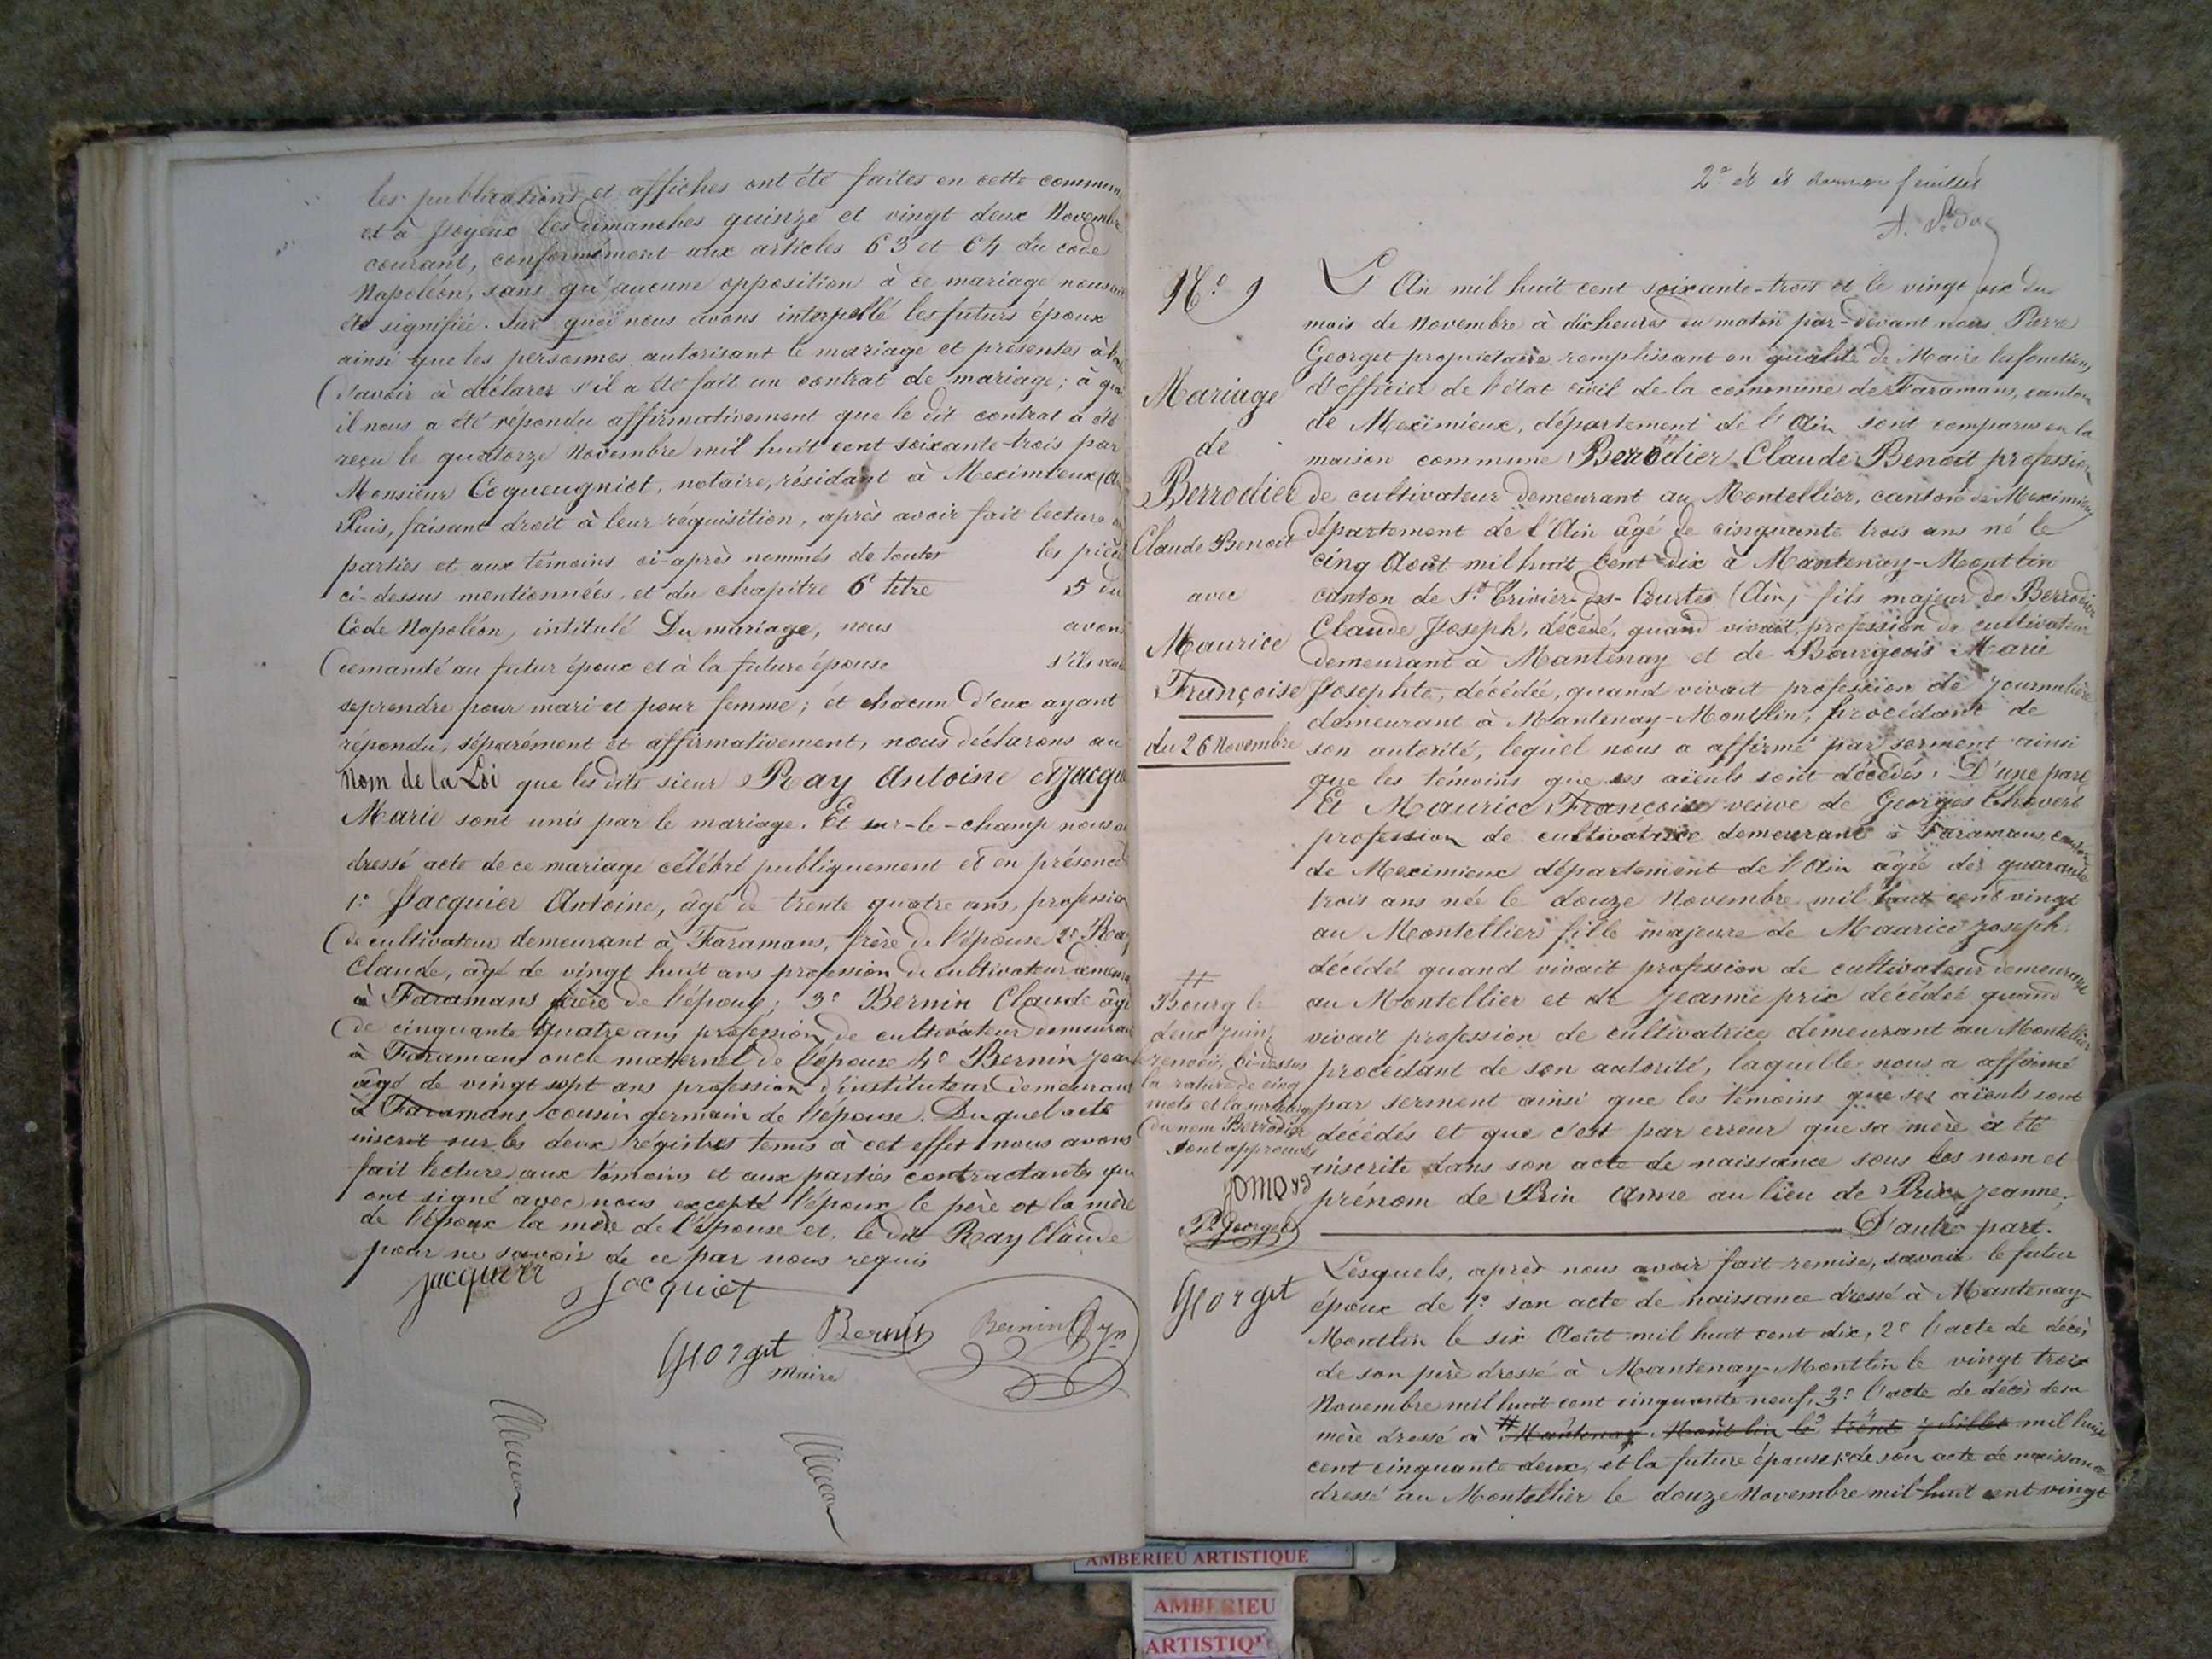 les publications et affiches ont été faites en cette commune
et à Joyeux les dimanches quinze et vingt deux Novembre
courant, conformément aux articles 63 et 64 du code
Napoléon, sans qu'aucune opposition à ce mariage nous ait
été signifiée. Sur quoi nous avons interpellé les futurs époux
ainsi que les personnes autorisant le mariage et présentes à
d'avoir à déclarer s'il a été fait un contrat de mariage; à quoi
il nous a été répondu affirmativement que le dit contrat a été
reçu le quatorze Novembre mil huit cent soixante-trois par
Monsieur Coqueugniot, notaire, résidant à Meximieux (Ain
Puis, faisant droit à leur réquisition, après avoir fait lecture aux
parties et aux témoins ci-après nommés de toutes les pièces
ci-dessus mentionnées, et du chapitre 6 titre 5 du
Code Napoléon, intitulé Du mariage, nous avons
demandé au futur époux et à la future épouse s'ils veulent
se prendre pour mari et pour femme; et chacun d'eux ayant
répondu, séparément et affirmativement, nous déclarons au
Nom de la Loi que les dits sieur Ray Antoine et Jacquier
Marie sont unis par le mariage. Et sur-le-champ nous avons
dressé acte de ce mariage célébré publiquement et en présence de
1º Jacquier Antoine, âgé de trente quatre ans, profession
de cultivateur demeurant à Faramans, frère de l'épouse 2º Ray
Claude, âgé de vingt huit ans profession de cultivateur demeurant
à Faramans frère de l'époux; 3º Bernin Claude âgé
de cinquante quatre ans profession de cultivateur demeurant
à Faramans oncle maternel de l'épouse 4º Bernin Jean
âgé de vingt sept ans profession d'instituteur demeurant
à Faramans cousin germain de l'épouse. Du quel acte
inscrit sur les deux régistres tenus à cet effet nous avons
fait lecture aux témoins et aux parties contractantes qui
ont signé avec nous excepté l'époux le père et la mère
de l'époux la mère de l'épouse et le dit Ray Claude
pour ne savoir de ce par nous requis
Jacquier Jacquiet
Georget Bernin Bernin
Maire
2º et et dernier feuillet
Nº 9
Mariage
de
Berrodier
Claude Benoit
avec
Maurice
Françoise
du 26 Novembre
L'An mil huit cent soixante-trois et le vingt six du
mois de Novembre à dix heures du matin par-devant nous Pierre
Georget propriétaire remplissant en qualité de Maire les fonctions
d'officier de l'état civil de la commune de Faramans, canton
de Meximieux, département de l'Ain sont comparus en la
maison commune Berrodier Claude Benoit profession
de cultivateur demeurant au Montellier, canton de Meximieux
département de l'Ain âgé de cinquante trois ans né le
cinq Août mil huit cent dix à Mantenay-Montlin
canton de St Trivier-des-Courtes (Ain) fils majeur de Berrodier
Claude Joseph, décédé, quand vivait, profession de cultivateur
demeurant à Mantenay et de Bourgeois Marie
Josephte, décédée, quand vivait profession de journalière
demeurant à Mantenay-Montlin, procédant de
son autorité, lequel nous a affirmé par serment ainsi
que les témoins que ses aïeuls sont décédés. D'une part
Et Maurice Françoise veuve de Georges Chovert
profession de cultivatrice demeurant à Faramans, canton
de Meximieux département de l'Ain âgée de quarante
trois ans née le douze Novembre mil huit cent vingt
au Montellier fille majeure de Maurice Joseph
décédé quand vivait profession de cultivateur demeurant
au Montellier et de Jeanne prix décédée quand
vivait profession de cultivatrice demeurant au Montellier
procédant de son autorité, laquelle nous a affirmé
par serment ainsi que les témoins que ses aïeuls sont
décédés et que c'est par erreur que sa mère a été
inscrite dans son acte de naissance sous les nom et
prénom de Prin Anne au lieu de Prix Jeanne;
D'autre part.
Lesquels, après nous avoir fait remise, savoir le futur
époux de 1º son acte de naissance dressé à Mantenay-
Montlin le six Août mil huit cent dix, 2º l'acte de décès
de son père dressé à Mantenay-Montlin le vingt trois
Novembre mil huit cent cinquante neuf, 3º l'acte de décès de sa
mère dressé à # Mantenay Montlin le trente juillet mil huit
cent cinquante deux, et la future épouse 1º de son acte de naissance
dressé au Montellier le douze Novembre mil huit cent vingt
#
Bourg le
deux juin
renvoi, ci-dessus
la rature de cinq
mots et la surcharge
du nom Berrodier
sont approuvés
P. Georget
Georget
AMBERIEU ARTISTIQUE
AMBERIEU
ARTISTIQU